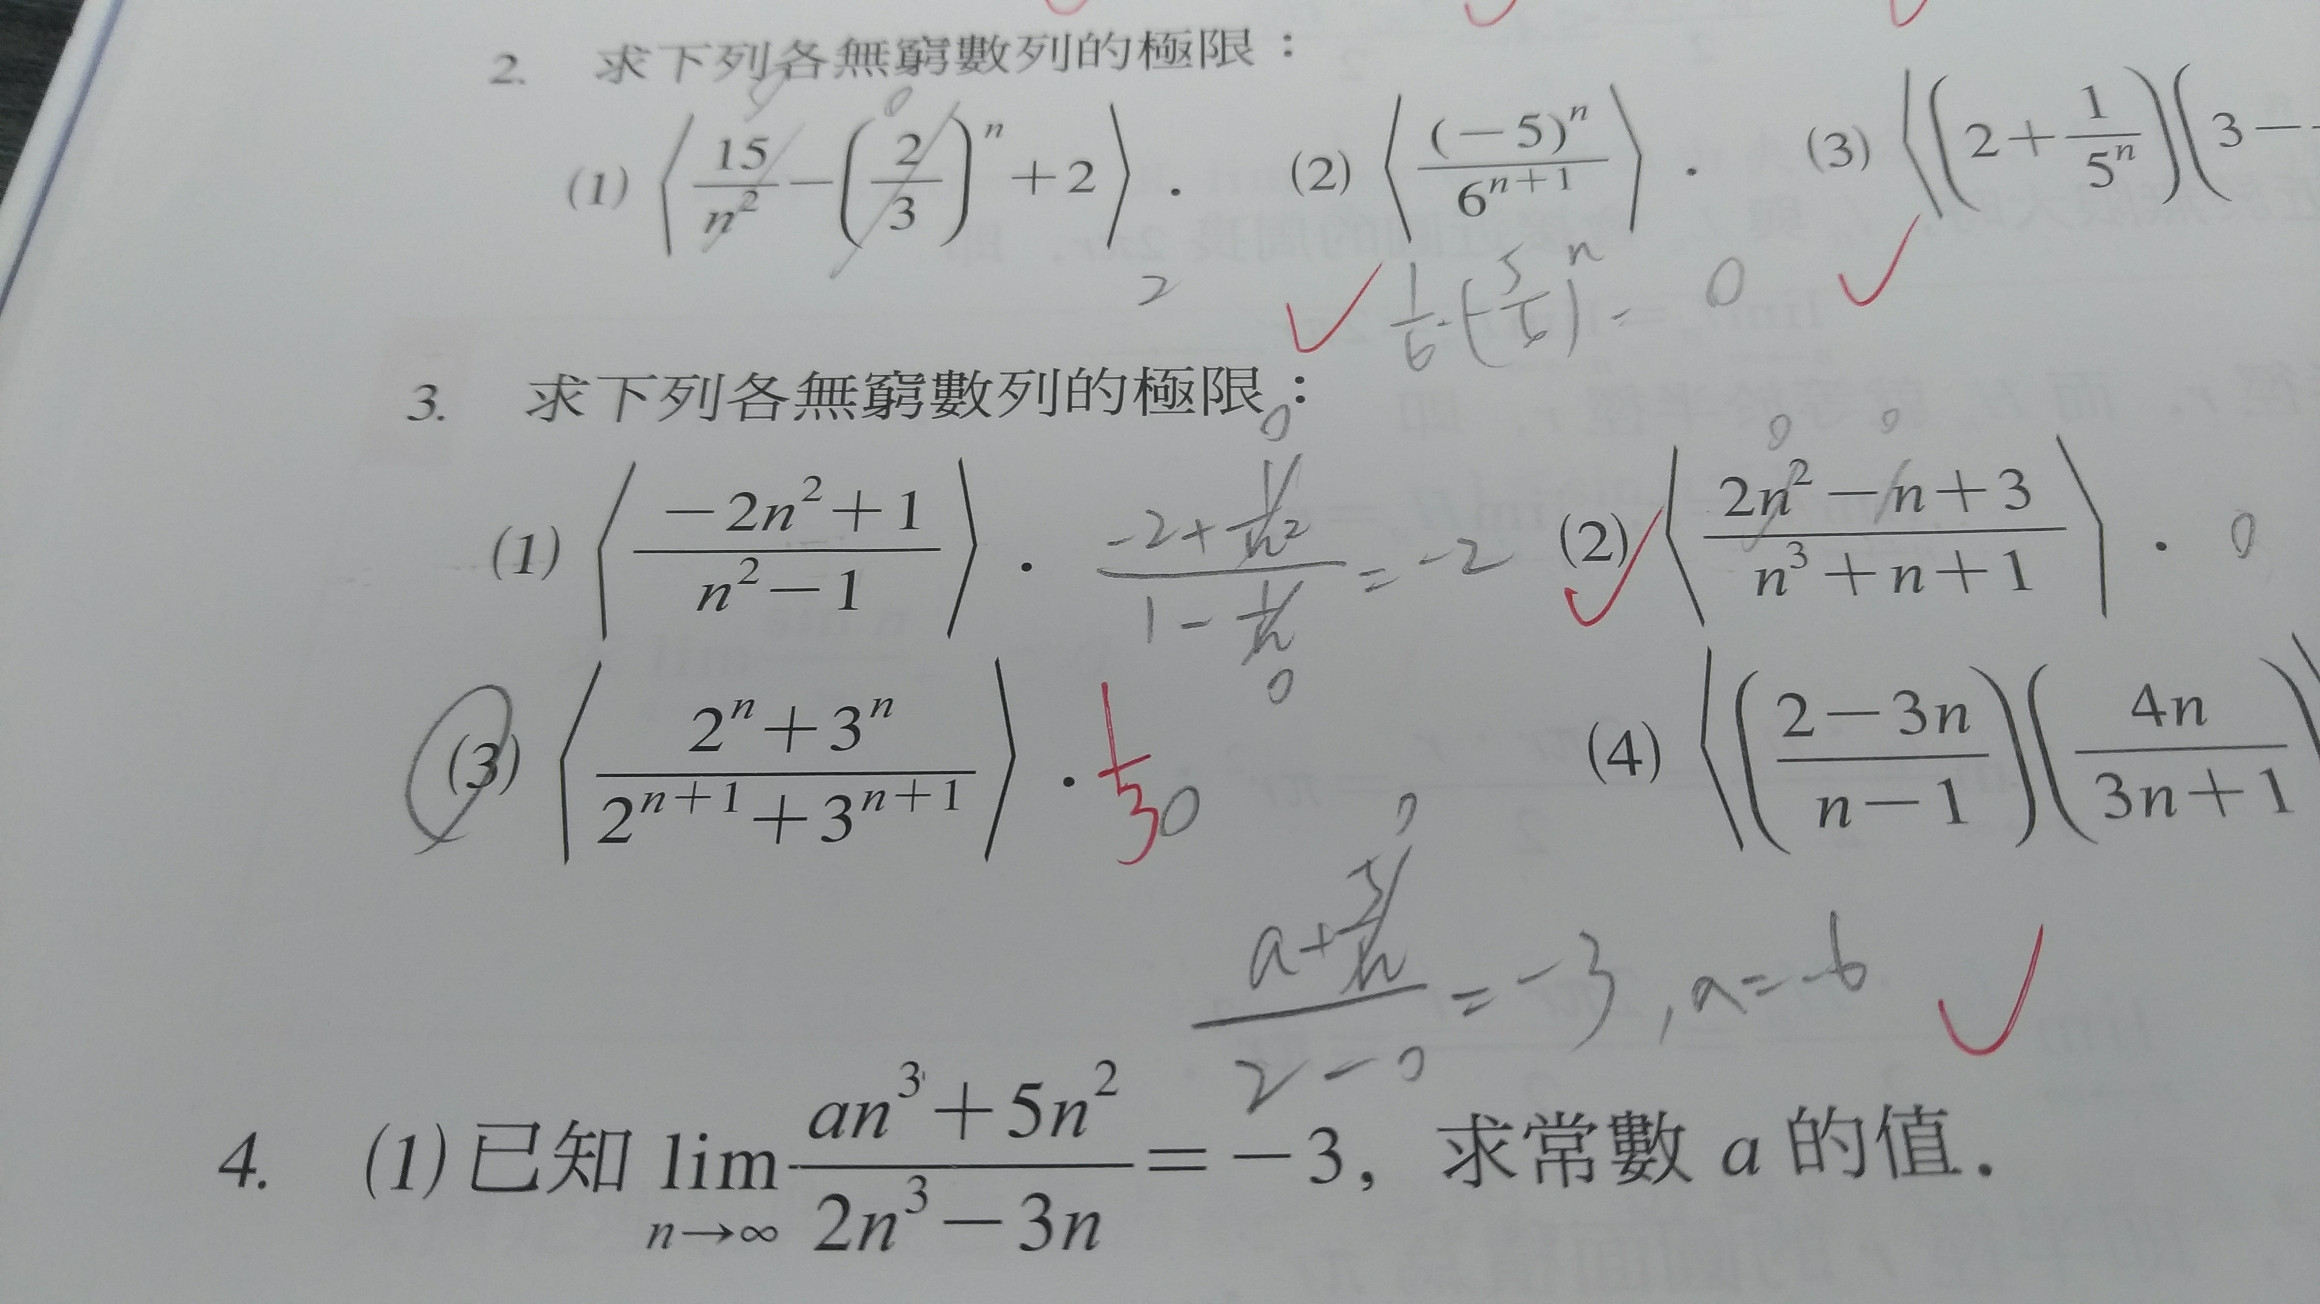 2. 求下列各無窮數列的極限：
(1) ⟨15/n² − (2/3)ⁿ + 2⟩. (2) ⟨(−5)ⁿ/6ⁿ⁺¹⟩. (3) ⟨(2 + 1/5ⁿ)(3 −
0 0
2
1/6·(−5/6)ⁿ = 0
3. 求下列各無窮數列的極限：
(1) ⟨(−2n² + 1)/(n² − 1)⟩. (−2 + 1/n²)/(1 − 1/n) = −2 (2) ⟨(2n² − n + 3)/(n³ + n + 1)⟩. 0
0 0 0 0
(3) ⟨(2ⁿ + 3ⁿ)/(2ⁿ⁺¹ + 3ⁿ⁺¹)⟩. 1/3 0 (4) ⟨((2 − 3n)/(n − 1))(4n/(3n + 1))⟩
0
(a + 5/n)/(2 − 0) = −3, a = −6
4. (1) 已知 lim n→∞ (an³ + 5n²)/(2n³ − 3n) = −3, 求常數 a 的值.